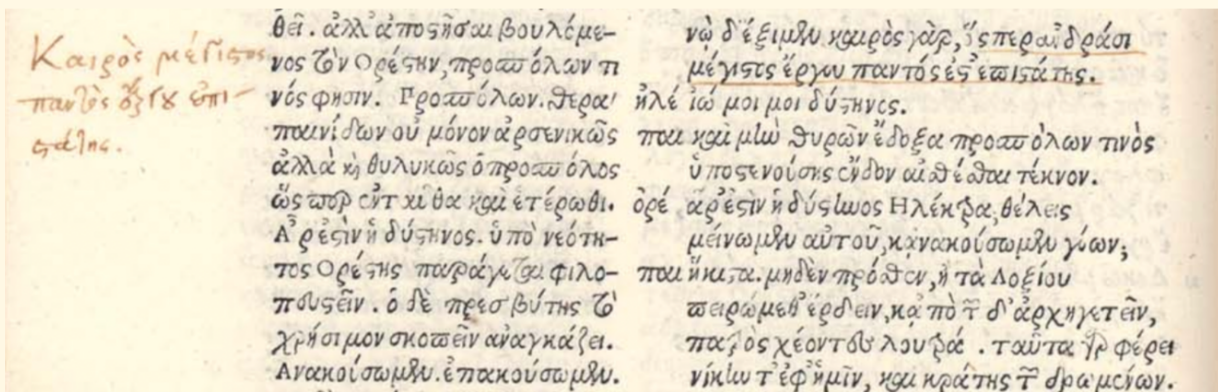 Καιρὸς μέγιστος
παντὸς ἔργου ἐπι-
στάτης.
θεῖ. ἀλλ' ἀποστῆσαι βουλόμε-
νος τὸν Ορέστην, προσπόλων τι
νός φησιν. Προσπόλων. θερα-
παινίδων οὐ μόνον ἀρσενικῶς
ἀλλὰ καὶ θυλυκῶς ὁ πρόσπολος
ὥσπερ ἐνταῦθα καὶ ἑτέρωθι.
Αρ' ἐστὶν ἡ δύστηνος. ὑπὸ νεότη-
τος Ορέστης παράγεται φιλο-
πευστεῖν. ὁ δὲ πρεσβύτης τὸ
χρήσιμον σκοπεῖν ἀναγκάζει.
Ανακούσωμεν. ἐπακούσωμεν.
νὼ δ' ἔξιμεν καιρὸς γὰρ, ὅσπερ ἀνδράσι
μέγιστος ἔργου παντός ἐστ' ἐπιστάτης.
ἠλέ ἰώ μοι μοι δύστηνος.
παι καὶ μὴν θυρῶν ἔδοξα προσπόλων τινὸς
ὑποστενούσης ἔνδον αἰσθέσθαι τέκνον.
ὀρέ ἆρ' ἐστὶν ἡ δύστηνος Ηλέκτρα, θέλεις
μείνωμεν αὐτοῦ, κἀνακούσωμεν γόων;
παι ἥκιστα. μηδὲν πρόσθεν, ἢ τὰ Λοξίου
πειρώμεθ' ἔρδειν, κἀπὸ τῶνδ' ἀρχηγετεῖν,
πατρὸς χέοντες λουτρά. ταῦτα γὰρ φέρει
νίκην τ' ἐφ' ἡμῖν, καὶ κράτης τῶν δρωμένων.